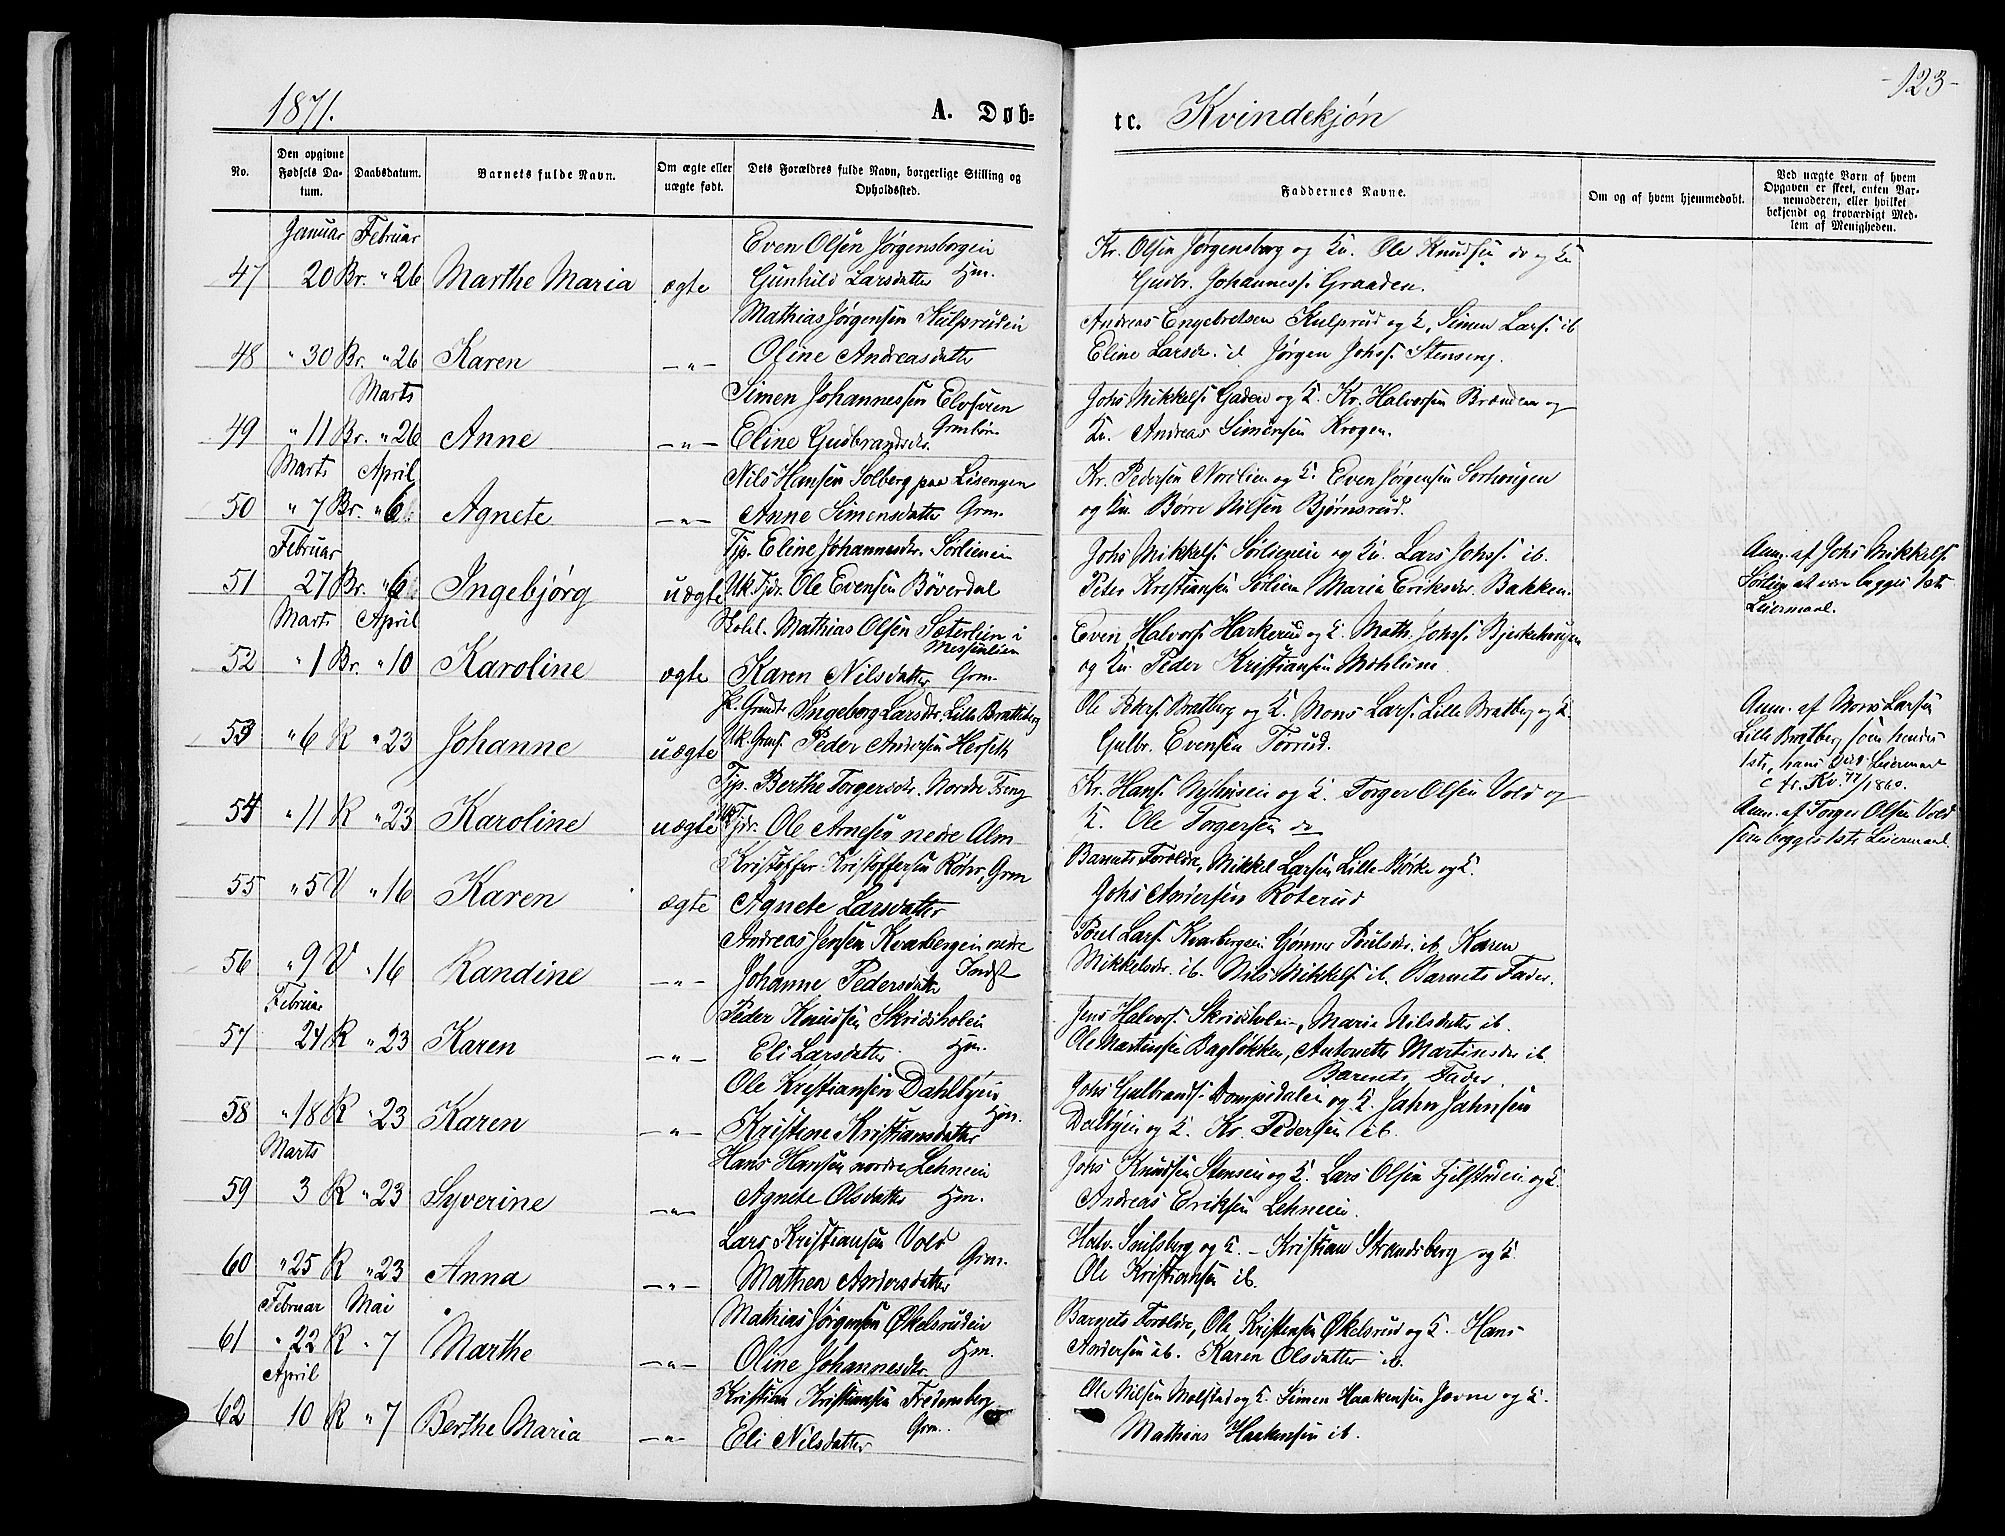 1871.
A. Døb-
tc. Kvindekjøn
-123-
No.
Den opgivne Fødsels Datum.
Daabsdatum.
Barnets fulde Navn.
Om ægte eller uægte født.
Dets Forældres fulde Navn, borgerlige Stilling og Opholdssted.
Faddernes Navne.
Om og af hvem hjemmedøbt.
Ved uægte Børn af hvem Opgaven er skeet, enten Barnemoderen, eller hvilket bekjendt og troværdigt Medlem af Menigheden.
Januar Februar
47 20 Br. " 26 Marthe Maria ægte
Even Olsen Jørgensborgein
Gunhild Larsdatter Hm.
Kr. Olsen Jørgensberg og Ku. Ole Knudsen do og Ku
Gudbr. Johanness. Graaden.
48 " 30 Br. " 26 Karen — " —
Mathias Jørgensen Kulpruden
Oline Andreasdatter
Andreas Engebretsen Kulprud og K, Simen Lars. ib
Eline Larsdr. Jørgen Johs. Stenseng.
Marts
49 " 11 Br. " 26 Anne — " —
Simen Johannessen
Eline Gudbrandsdr.
Johs Mikkels. Gaden og K. Kr. Halvorsen Brænden og
Ku. Andreas Simensen Krogen.
Marts April
50 " 7 Br. " 6 Agnete — " —
Nils Hansen Solberg paa Lisengen
Anne Simensdatter Grm.
Kr. Pedersen Nordlien og K. Even Jørgensen
og Ku. Børre Nilsen Bjørnsrud.
Februar
51 27 Br. " 6 Ingebjørg uægte
Tjp. Eline Johannesdr. Sørlien
Uk. Tjdr. Ole Evensen Bøverdal
Johs Mikkels. Sørlien og Ku. Lars Johs. ib.
Peter Kristiansen Sølien Maria Eriksdr. Bakken.
Anm. af Johs Mikkels.
Sørlien at være begges 1ste
Leiermaal.
Marts April
52 " 1 Br. " 10 Karoline ægte
Mathias Olsen Sæterlien i
Messenlien
Karen Nilsdatter Grm.
Even Halvors. Hakerud og K. Math. Johs.
og Ku. Peder Kristiansen Mæhlum.
53 " 6 R " 23 Johanne uægte
Ingeborg Larsdr. Lille Bratberg
Uk. Peder Andersen Herseth
Ole Peders. Bratberg og K. Mons Lars. Lille Bratberg og K.
Gulbr. Evensen Tørrud.
Anm. af Mons Larsen
Lille Bratberg som hendes
1ste, hans 2det Leiermaal
54 " 11 R " 23 Karoline uægte
Tjp. Berthe Torgersdr. Nordre Eeng
Uk. Tjdr. Ole Arnesen nedre Alm
Kr. Hans. Nyhusen og K. Torger Olsen Vold og
K. Ole Torgersen do
Anm. af Torger Olsen Vold
som begges 1ste Leiermaal.
55 " 5 V " 16 Karen ægte
Kristoffer Kristoffersen Røhr, Grm
Agnete Larsdatter
Barnets Forældre, Mikkel Larsen Lille Børke og K.
Johs Andersen Roterud
56 " 9 V " 16 Randine — " —
Andreas Jensen Kvarbergein nedre
Johanne Pedersdatter Indst
Poul Lars. Kvarbergein Gønner Poulsdr. ib. Karen
Mikkelsdr. ib. Nils Mikkels. ib. Barnets Fader.
Februar
57 24 R " 23 Karen — " —
Peder Knudsen Skridsholen
Eli Larsdatter Hm.
Jens Halvors. Skridsholen, Marie Nilsdatter ib.
Ole Martinsen Bagløkken, Antonette Martinsdr ib.
Barnets Fader.
58 " 18 R " 23 Karen — " —
Ole Kristiansen Dahlbyen
Kristine Kristiansdatter Hm.
Johs Gulbrands. Dompidalen og K. Jahn Jahnsen
Dalbyen og K. Kr. Pedersen ib.
Marts
59 3 R " 23 Syverine — " —
Hans Hansen nordre Lehneien
Agnete Olsdatter Hm.
Johs Knudsen Stensen og K. Lars Olsen Fjelstuen og K.
Andreas Eriksen Lehneien.
60 " 25 R " 23 Anna — " —
Lars Kristiansen Vold
Grm.
Mathea Andersdatter
Halv. Snilsberg og K. – Kristian Strandsberg og K.
Ole Kristiansen ib.
Februar Mai
61 " 22 R " 7 Marthe — " —
Mathias Jørgensen Økelsruden
Oline Johannesdr. Hm.
Barnets Forældre, Ole Kristensen Økelsrud og K. Hans
Andersen ib. Karen Olsdatter ib.
April
62 10 R " 7 Berthe Maria — " —
Kristian Kristiansen Fredensberg
Eli Nilsdatter Grm.
Ole Nilsen Molstad og K. Simen Haakensen Jevne og K.
Mathias Haakensen ib.